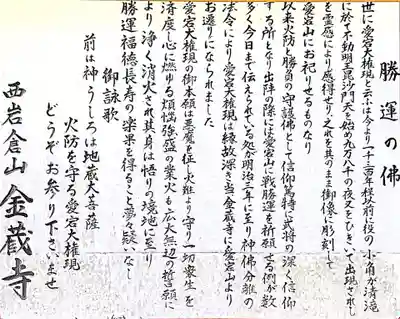 勝運の佛
世に愛宕大権現と云ふは今より一千二百年程以前に役の小角が清滝
に於て不動明王毘沙門天を始め九万八千の夜叉をひきいて出現されし
を霊感により感得せりこれを其のまま御像に彫刻して
愛宕山にお祀りせるものなり
以来火防と勝負の守護佛として信仰篤特に武将の深く信仰
する所となり出陣の際には愛宕山に戦勝運を祈願せる例が数
多く今日まで伝えられている処が明治三年に至り神佛分離の
法令により愛宕大権現は縁故深き当金蔵寺に愛宕山より
お遷りになられました
愛宕大権現の御本願は悪魔を征し火難より守り一切衆生を
済度し心に燃ゆる煩悩強盛の業火も広大無辺の誓願に
より浄く消火され其身は悟りの境地に至り
勝運福徳長寿の楽果を得ること夢々疑いなし
御詠歌
前は神うしろは地蔵大菩薩
火防を守る愛宕大権現
どうぞお参り下さいませ
西岩倉山金蔵寺